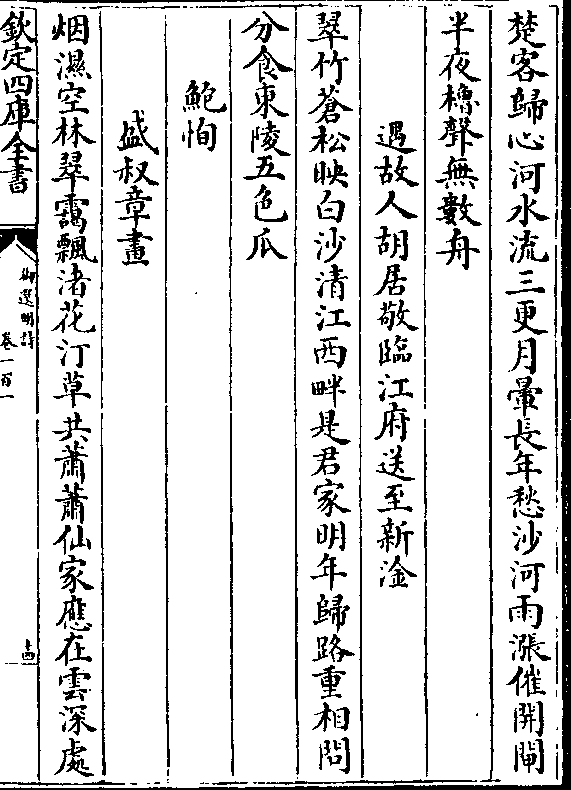 楚客歸心河水流三更月暈長年愁沙河雨漲催開閘
半夜櫓聲無數舟
遇故人胡居敬臨江府送至新淦
翠竹蒼松映白沙清江西畔是君家明年歸路重相問
分食東陵五色瓜
鮑恂
盛叔章畫
烟濕空林翠靄飄渚花汀草共蕭蕭仙家應在雲深處
欽定四庫全書
御選明詩
卷一百一
十四